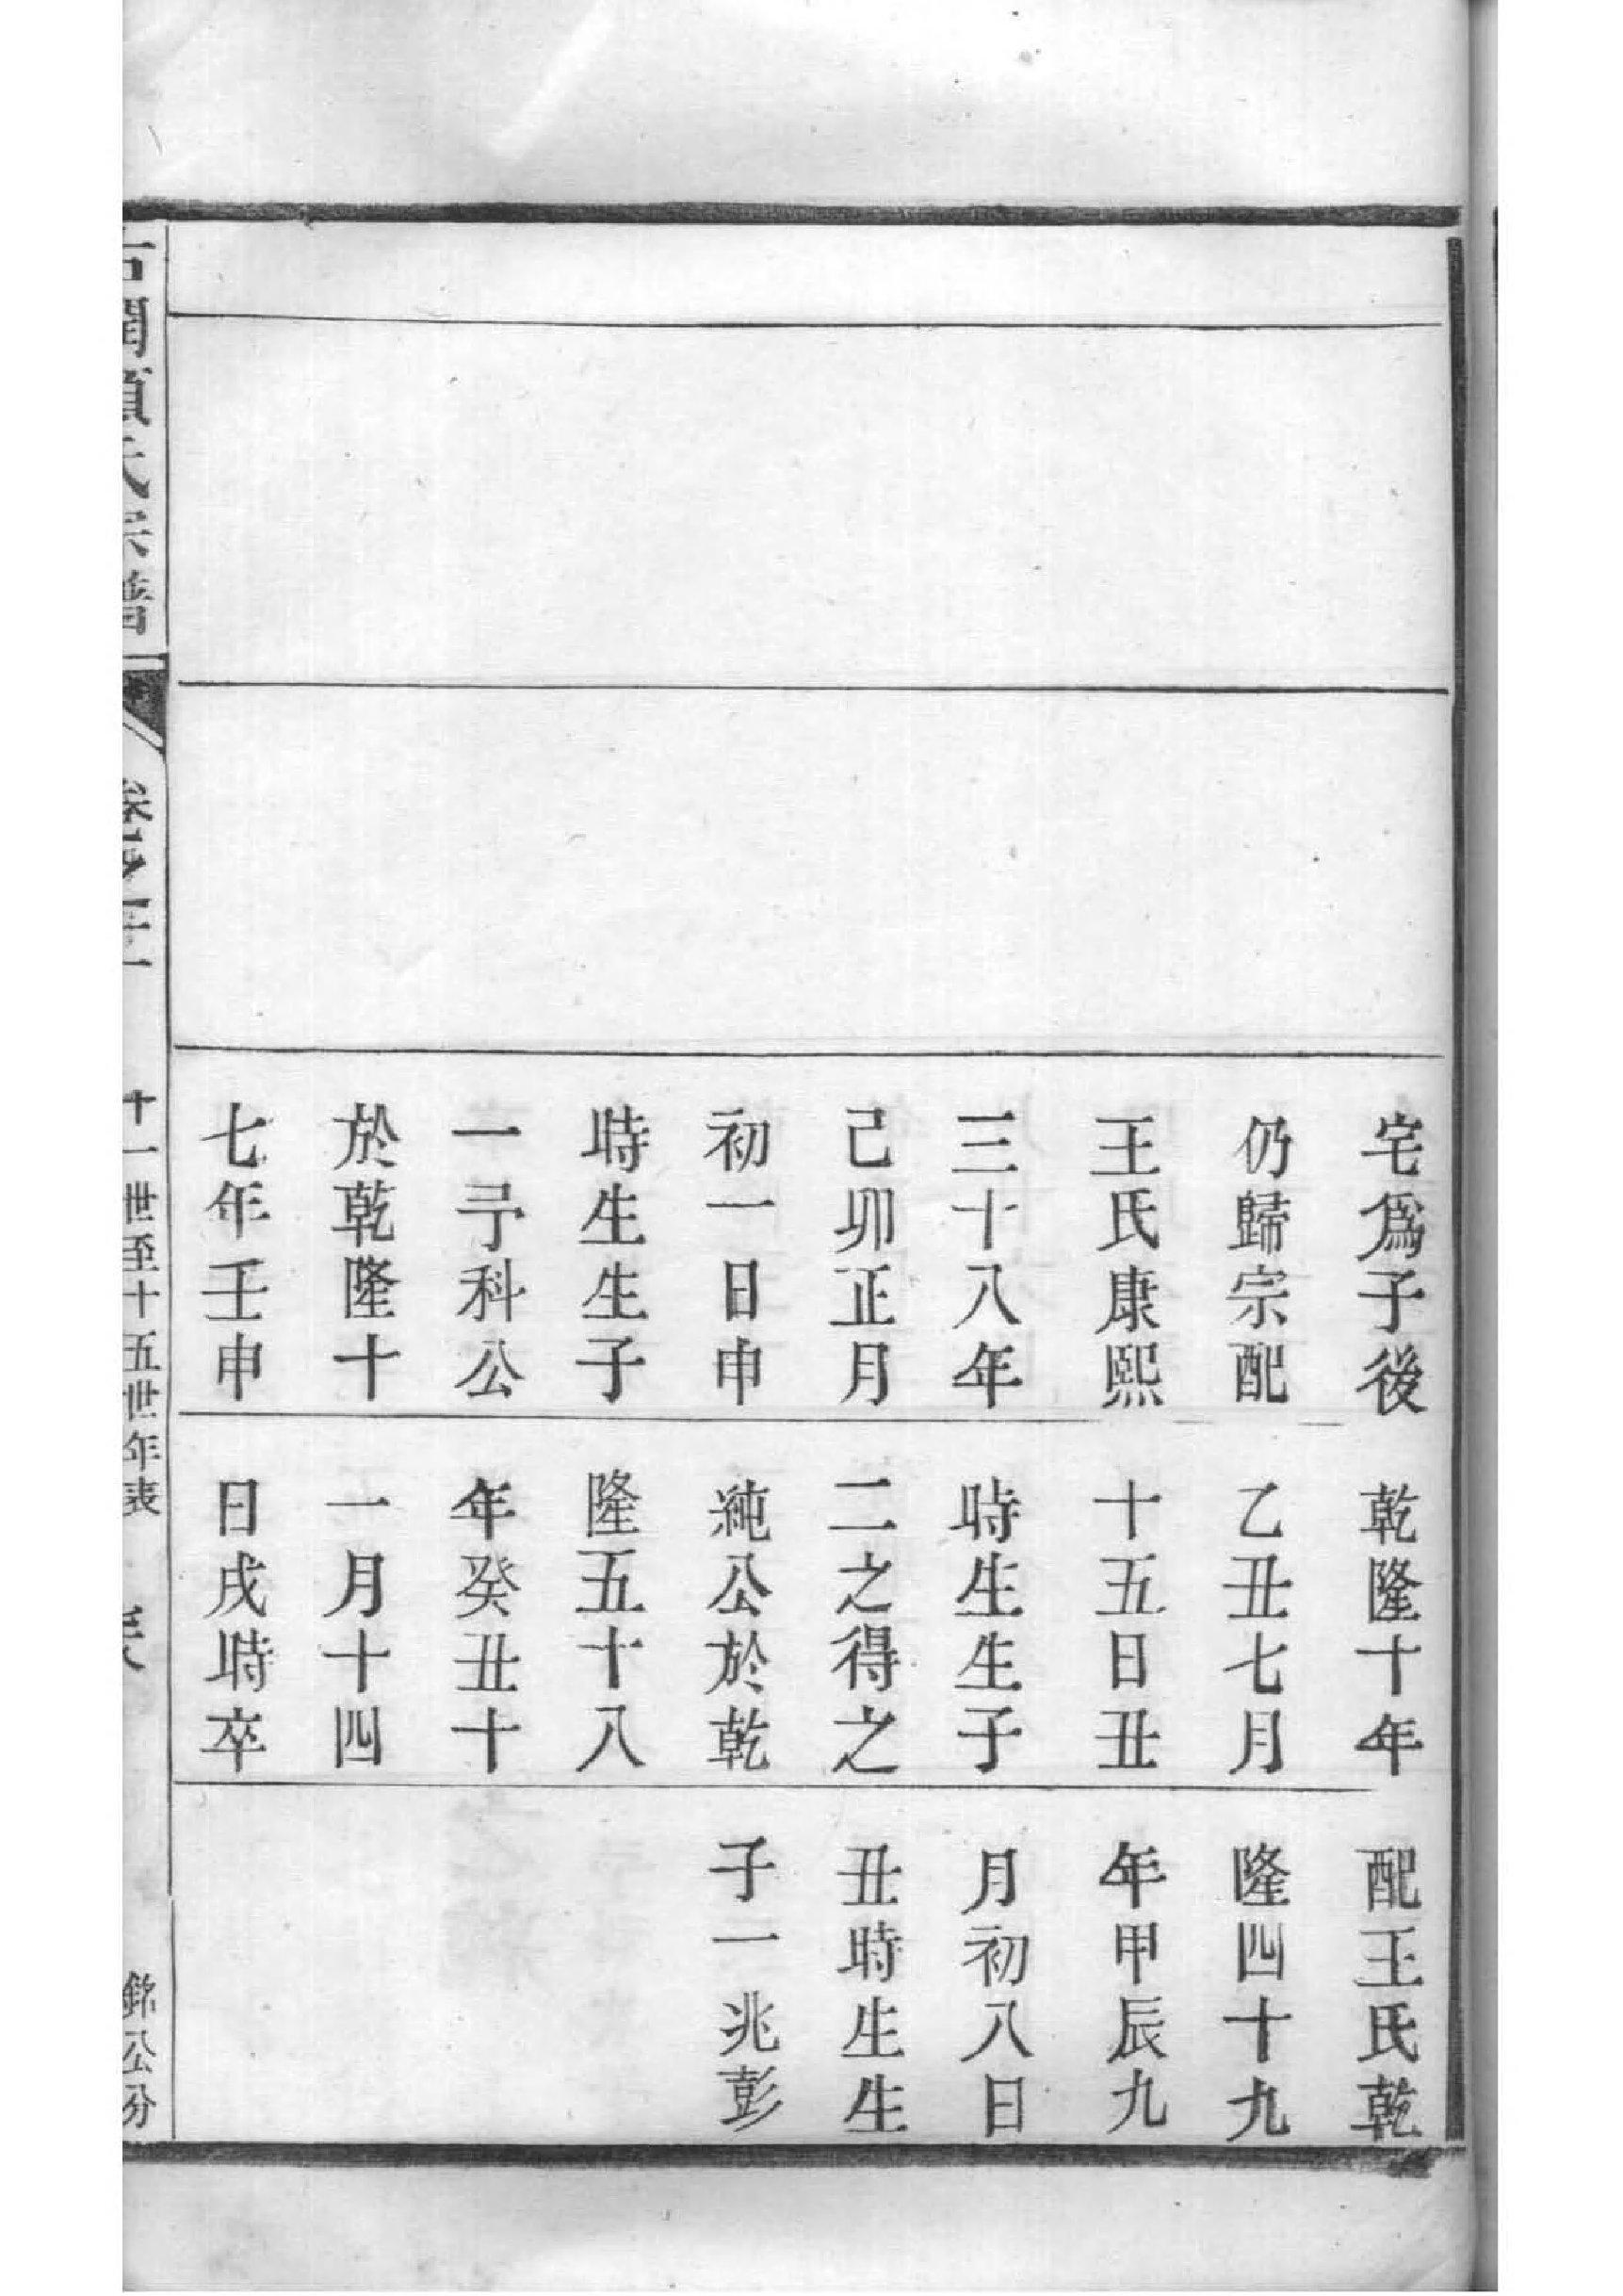 宅爲子後
仍歸宗配
王氏康熙
三十八年
己卯正月
初一日申
時生生子
一予科公
於乾隆十
七年壬申
乾隆十年
乙丑七月
十五日丑
時生生子
二之得之
純公於乾
隆五十八
年癸丑十
一月十四
日戌時卒
配王氏乾
隆四十九
年甲辰九
月初八日
丑時生生
子一兆彭
氏宗譜
十一世至十五世年表
銘公分